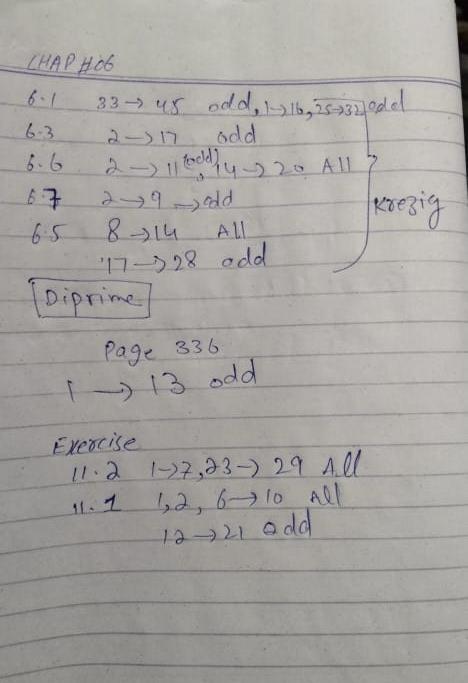 CHAP #06
6.1 33→45 odd, 1→16, 25→32 odd
6.3 2→17 odd
6.6 2→11 (odd), 14→20 All
6.7 2→9 → odd
6.5 8→14 All
17→28 odd
Krezig
Diprime
Page 336
1 → 13 odd
Exercise
11.2 1→7, 23→29 All
11.1 1,2, 6→10 All
12→21 odd